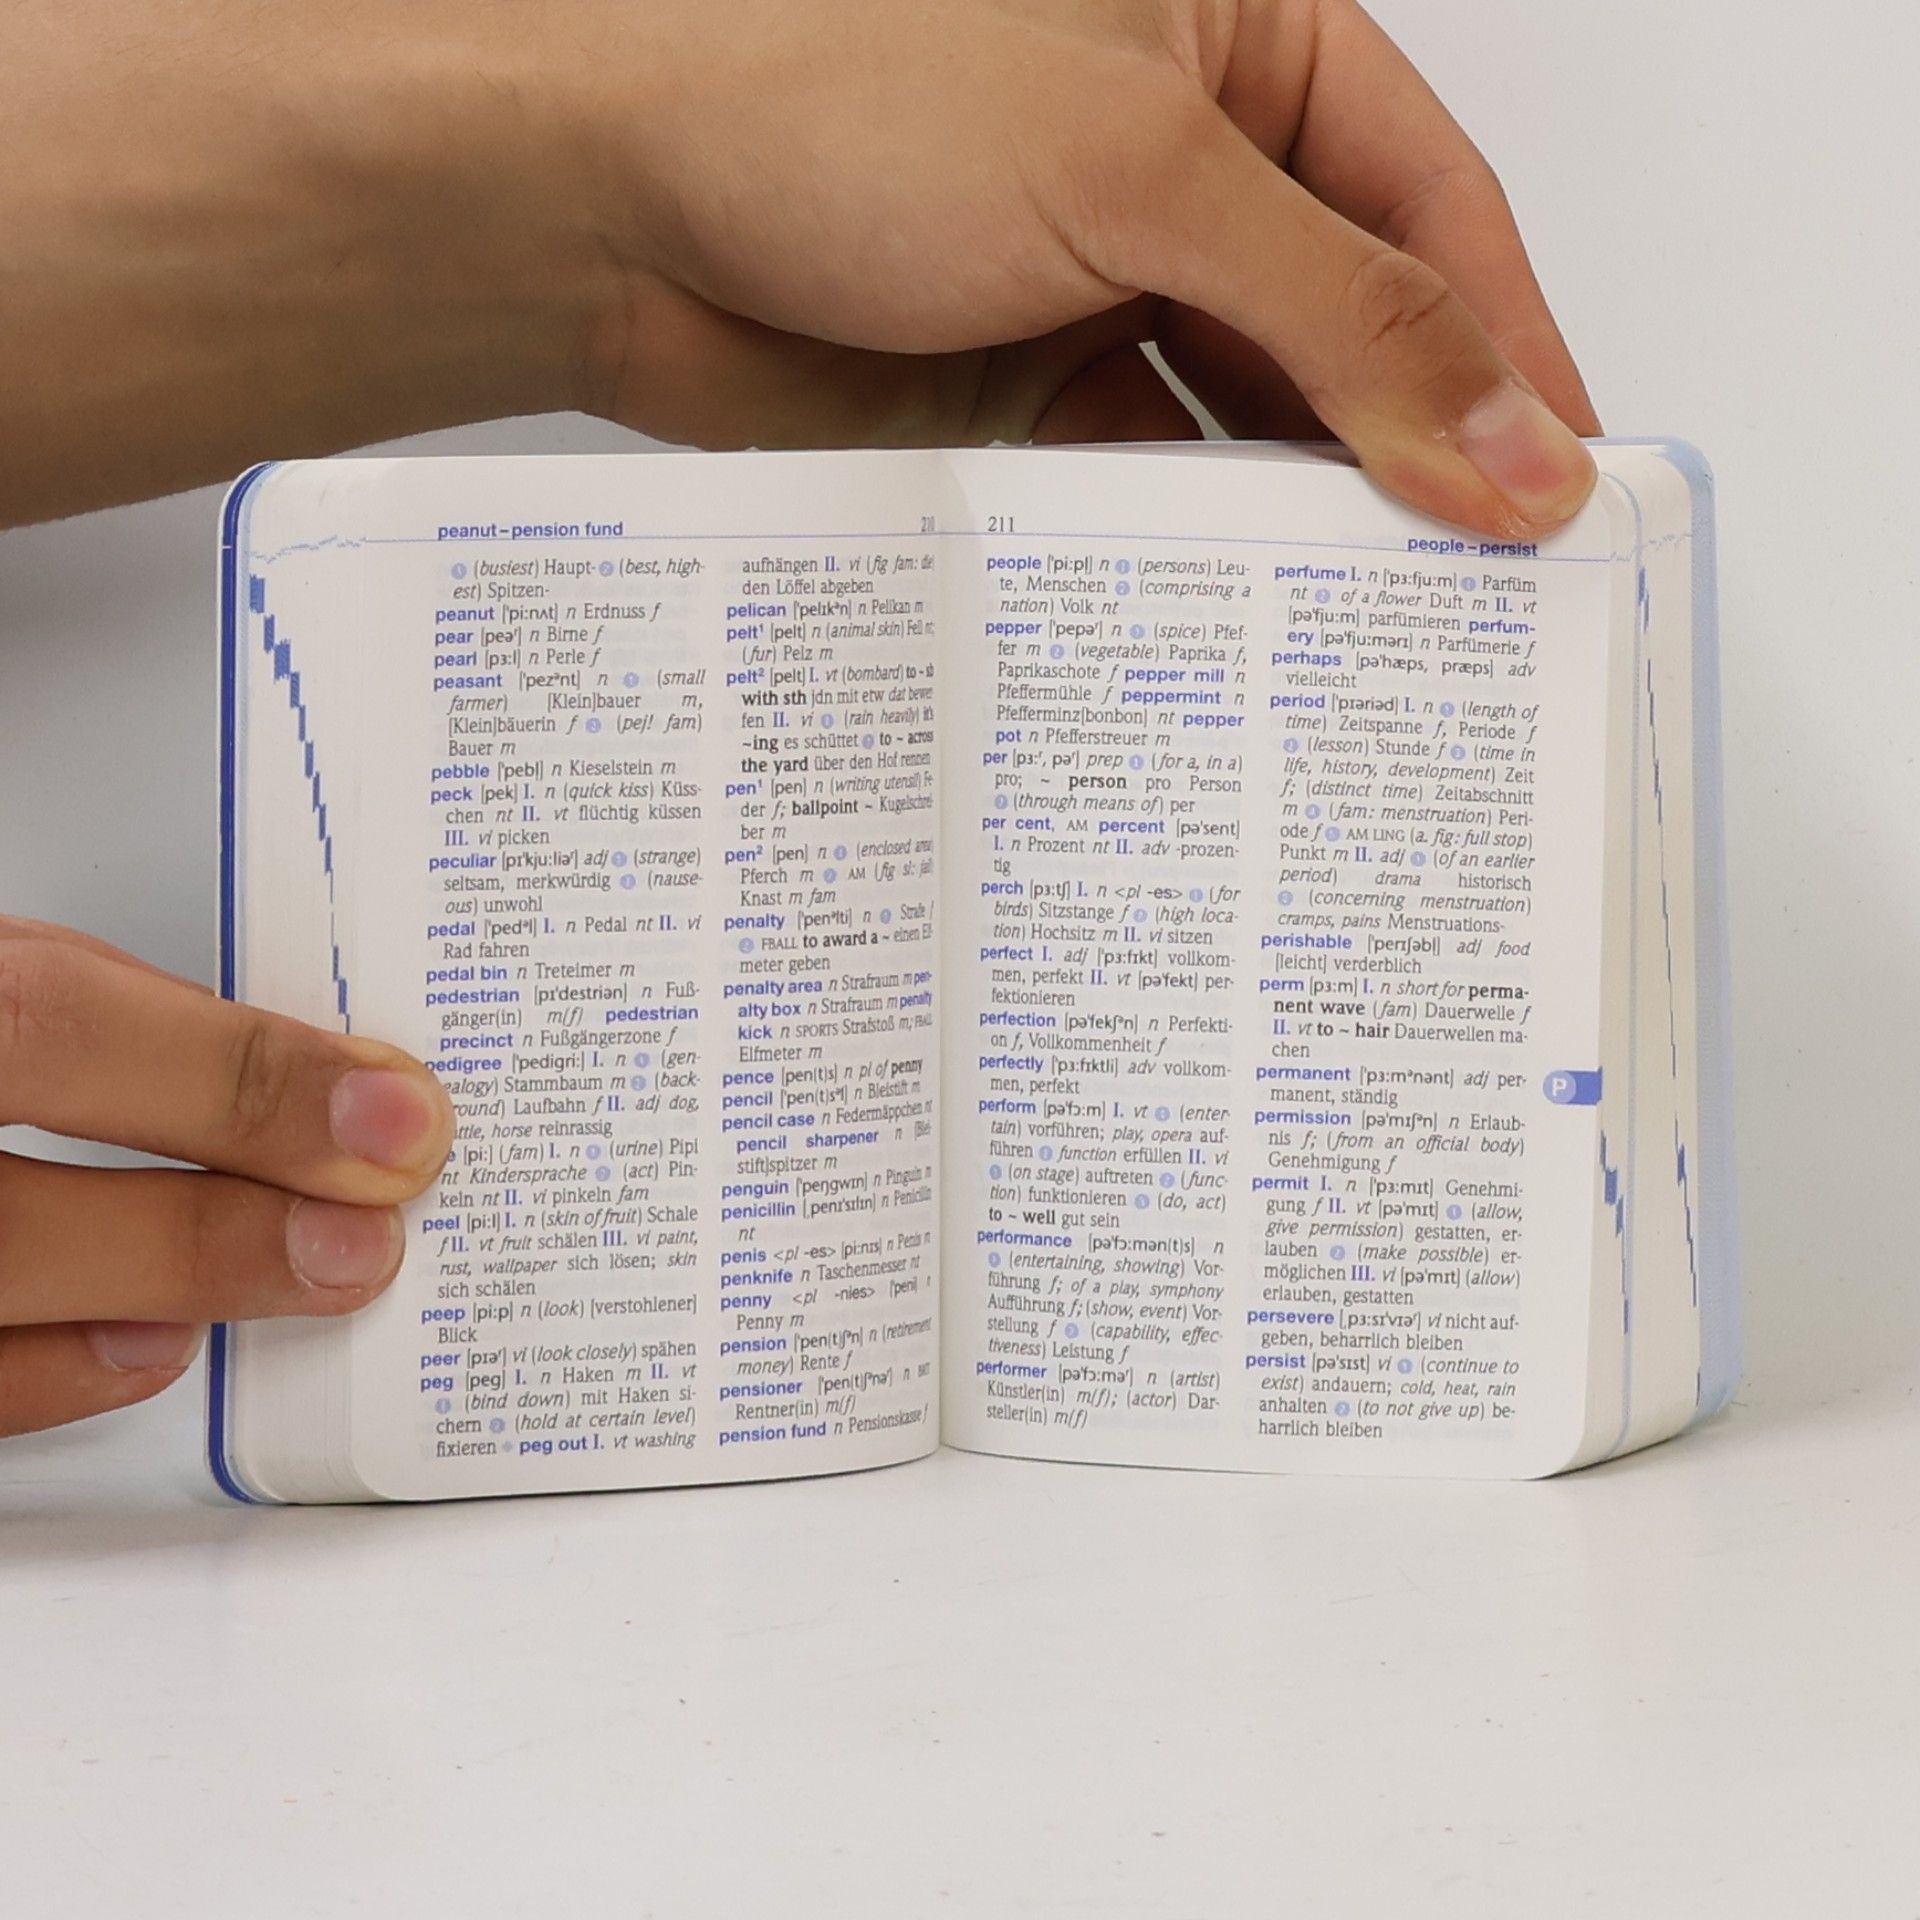 peanut–pension fund
210
❶ (busiest) Haupt- ❷ (best, high-
est) Spitzen-
peanut ['pi:nʌt] n Erdnuss f
pear [peəʳ] n Birne f
pearl [pɜ:l] n Perle f
peasant ['pezᵊnt] n ❶ (small
farmer) [Klein]bauer m,
[Klein]bäuerin f ❷ (pej! fam)
Bauer m
pebble ['pebl̩] n Kieselstein m
peck [pek] I. n (quick kiss) Küss-
chen nt II. vt flüchtig küssen
III. vi picken
peculiar [pɪ'kju:liəʳ] adj ❶ (strange)
seltsam, merkwürdig ❷ (nause-
ous) unwohl
pedal ['pedᵊl] I. n Pedal nt II. vi
Rad fahren
pedal bin n Treteimer m
pedestrian [pɪ'destriən] n Fuß-
gänger(in) m(f) pedestrian
precinct n Fußgängerzone f
pedigree ['pedigri:] I. n ❶ (gen-
ealogy) Stammbaum m ❷ (back-
round) Laufbahn f II. adj dog,
horse reinrassig
[pi:] (fam) I. n ❶ (urine) Pipi
nt Kindersprache ❷ (act) Pin-
keln nt II. vi pinkeln fam
peel [pi:l] I. n (skin of fruit) Schale
f II. vt fruit schälen III. vi paint,
rust, wallpaper sich lösen; skin
sich schälen
peep [pi:p] n (look) [verstohlener]
Blick
peer [pɪəʳ] vi (look closely) spähen
peg [peg] I. n Haken m II. vt
❶ (bind down) mit Haken si-
chern ❷ (hold at certain level)
fixieren ◆ peg out I. vt washing
aufhängen II. vi (fig fam: die)
den Löffel abgeben
pelican ['pelɪkᵊn] n Pelikan m
pelt¹ [pelt] n (animal skin) Fell nt;
(fur) Pelz m
pelt² [pelt] I. vt (bombard) to ~ sb
with sth jdn mit etw dat bewer
fen II. vi ❶ (rain heavily) it's
~ing es schüttet ❷ to ~ across
the yard über den Hof rennen
pen¹ [pen] n (writing utensil) Fe-
der f; ballpoint ~ Kugelschrei-
ber m
pen² [pen] n ❶ (enclosed area)
Pferch m ❷ AM (fig sl: jail)
Knast m fam
penalty ['penᵊlti] n ❶ Strafe f
❷ FBALL to award a ~ einen Elf-
meter geben
penalty area n Strafraum m pen-
alty box n Strafraum m penalty
kick n SPORTS Strafstoß m; FBALL
Elfmeter m
pence [pen(t)s] n pl of penny
pencil ['pen(t)sᵊl] n Bleistift m
pencil case n Federmäppchen nt
pencil sharpener n [Blei-
stift]spitzer m
penguin ['peŋgwɪn] n Pinguin m
penicillin [ˌpenɪ'sɪlɪn] n Penicillin
nt
penis <pl -es> [pi:nɪs] n Penis m
penknife n Taschenmesser nt
penny <pl -nies> ['peni] n
Penny m
pension ['pen(t)ʃᵊn] n (retirement
money) Rente f
pensioner ['pen(t)ʃᵊnəʳ] n BRIT
Rentner(in) m(f)
pension fund n Pensionskasse f
211
people–persist
people ['pi:pl̩] n ❶ (persons) Leu-
te, Menschen ❷ (comprising a
nation) Volk nt
pepper ['pepəʳ] n ❶ (spice) Pfef-
fer m ❷ (vegetable) Paprika f,
Paprikaschote f pepper mill n
Pfeffermühle f peppermint n
Pfefferminz[bonbon] nt pepper
pot n Pfefferstreuer m
per [pɜ:ʳ, pəʳ] prep ❶ (for a, in a)
pro; ~ person pro Person
❷ (through means of) per
per cent, AM percent [pə'sent]
I. n Prozent nt II. adv -prozen-
tig
perch [pɜ:tʃ] I. n <pl -es> ❶ (for
birds) Sitzstange f ❷ (high loca-
tion) Hochsitz m II. vi sitzen
perfect I. adj ['pɜ:fɪkt] vollkom-
men, perfekt II. vt [pə'fekt] per-
fektionieren
perfection [pə'fekʃᵊn] n Perfekti-
on f, Vollkommenheit f
perfectly ['pɜ:fɪktli] adv vollkom-
men, perfekt
perform [pə'fɔ:m] I. vt ❶ (enter
tain) vorführen; play, opera auf-
führen ❷ function erfüllen II. vi
❶ (on stage) auftreten ❷ (func-
tion) funktionieren ❸ (do, act)
to ~ well gut sein
performance [pə'fɔ:mən(t)s] n
❶ (entertaining, showing) Vor-
führung f; of a play, symphony
Aufführung f; (show, event) Vor-
stellung f ❷ (capability, effec-
tiveness) Leistung f
performer [pə'fɔ:məʳ] n (artist)
Künstler(in) m(f); (actor) Dar-
steller(in) m(f)
perfume I. n ['pɜ:fju:m] ❶ Parfüm
nt ❷ of a flower Duft m II. vt
[pə'fju:m] parfümieren perfum-
ery [pə'fju:mərɪ] n Parfümerie f
perhaps [pə'hæps, præps] adv
vielleicht
period ['pɪəriəd] I. n ❶ (length of
time) Zeitspanne f, Periode f
❷ (lesson) Stunde f ❸ (time in
life, history, development) Zeit
f; (distinct time) Zeitabschnitt
m ❹ (fam: menstruation) Peri-
ode f ❺ AM LING (a. fig: full stop)
Punkt m II. adj ❶ (of an earlier
period) drama historisch
❷ (concerning menstruation)
cramps, pains Menstruations-
perishable ['perɪʃəbl̩] adj food
[leicht] verderblich
perm [pɜ:m] I. n short for perma-
nent wave (fam) Dauerwelle f
II. vt to ~ hair Dauerwellen ma-
chen
permanent ['pɜ:mᵊnənt] adj per-
manent, ständig
permission [pə'mɪʃᵊn] n Erlaub-
nis f; (from an official body)
Genehmigung f
permit I. n ['pɜ:mɪt] Genehmi-
gung f II. vt [pə'mɪt] ❶ (allow,
give permission) gestatten, er-
lauben ❷ (make possible) er-
möglichen III. vi [pə'mɪt] (allow)
erlauben, gestatten
persevere [ˌpɜ:sɪ'vɪəʳ] vi nicht auf-
geben, beharrlich bleiben
persist [pə'sɪst] vi ❶ (continue to
exist) andauern; cold, heat, rain
anhalten ❷ (to not give up) be-
harrlich bleiben
P